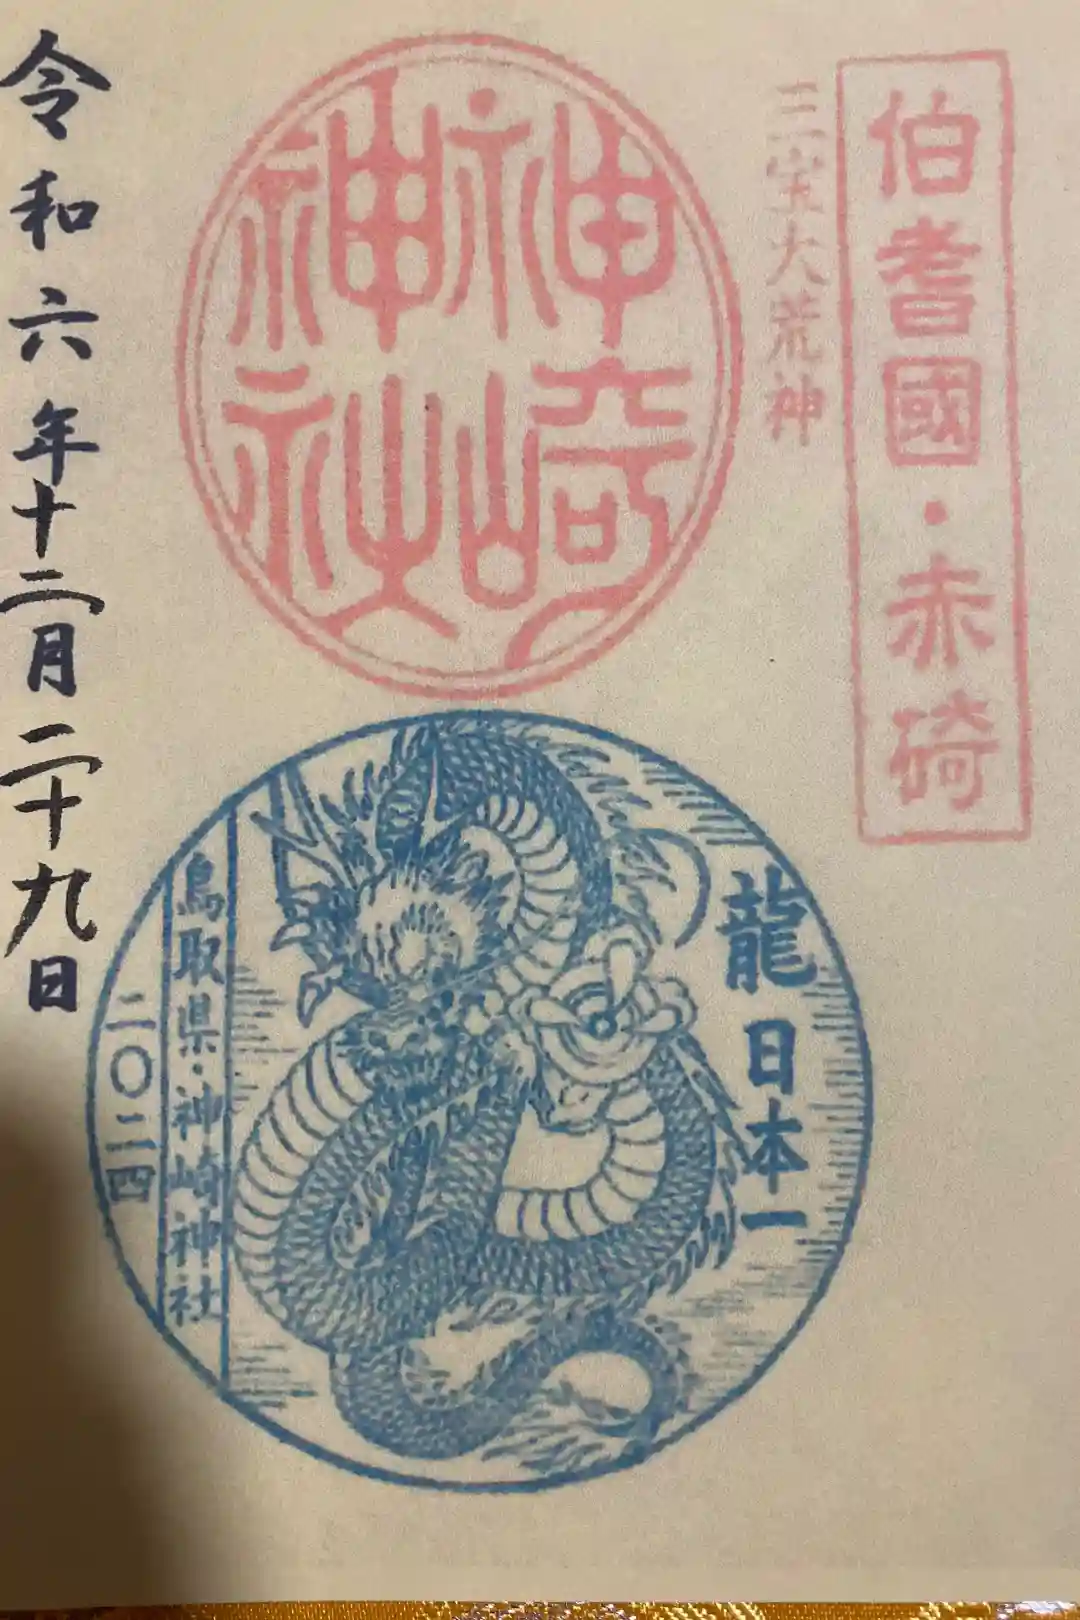 伯耆國・赤碕
三宝大荒神
神崎神社
龍日本一
鳥取県・神崎神社
二〇二四
令和六年十二月二十九日